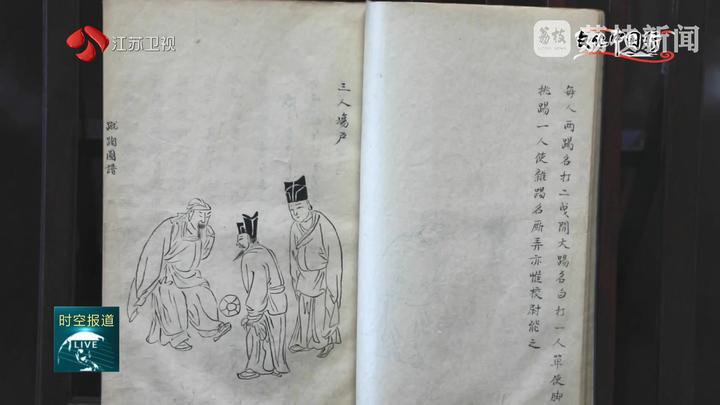 江苏卫视
荔枝
荔枝新闻
每人兩踢名打二曳開大踢名白打一人單使脚
挑踢一人使雜踢名廝弄亦惟校尉能之
三人場戶
蹴踘圖譜
时空报道
LIVE